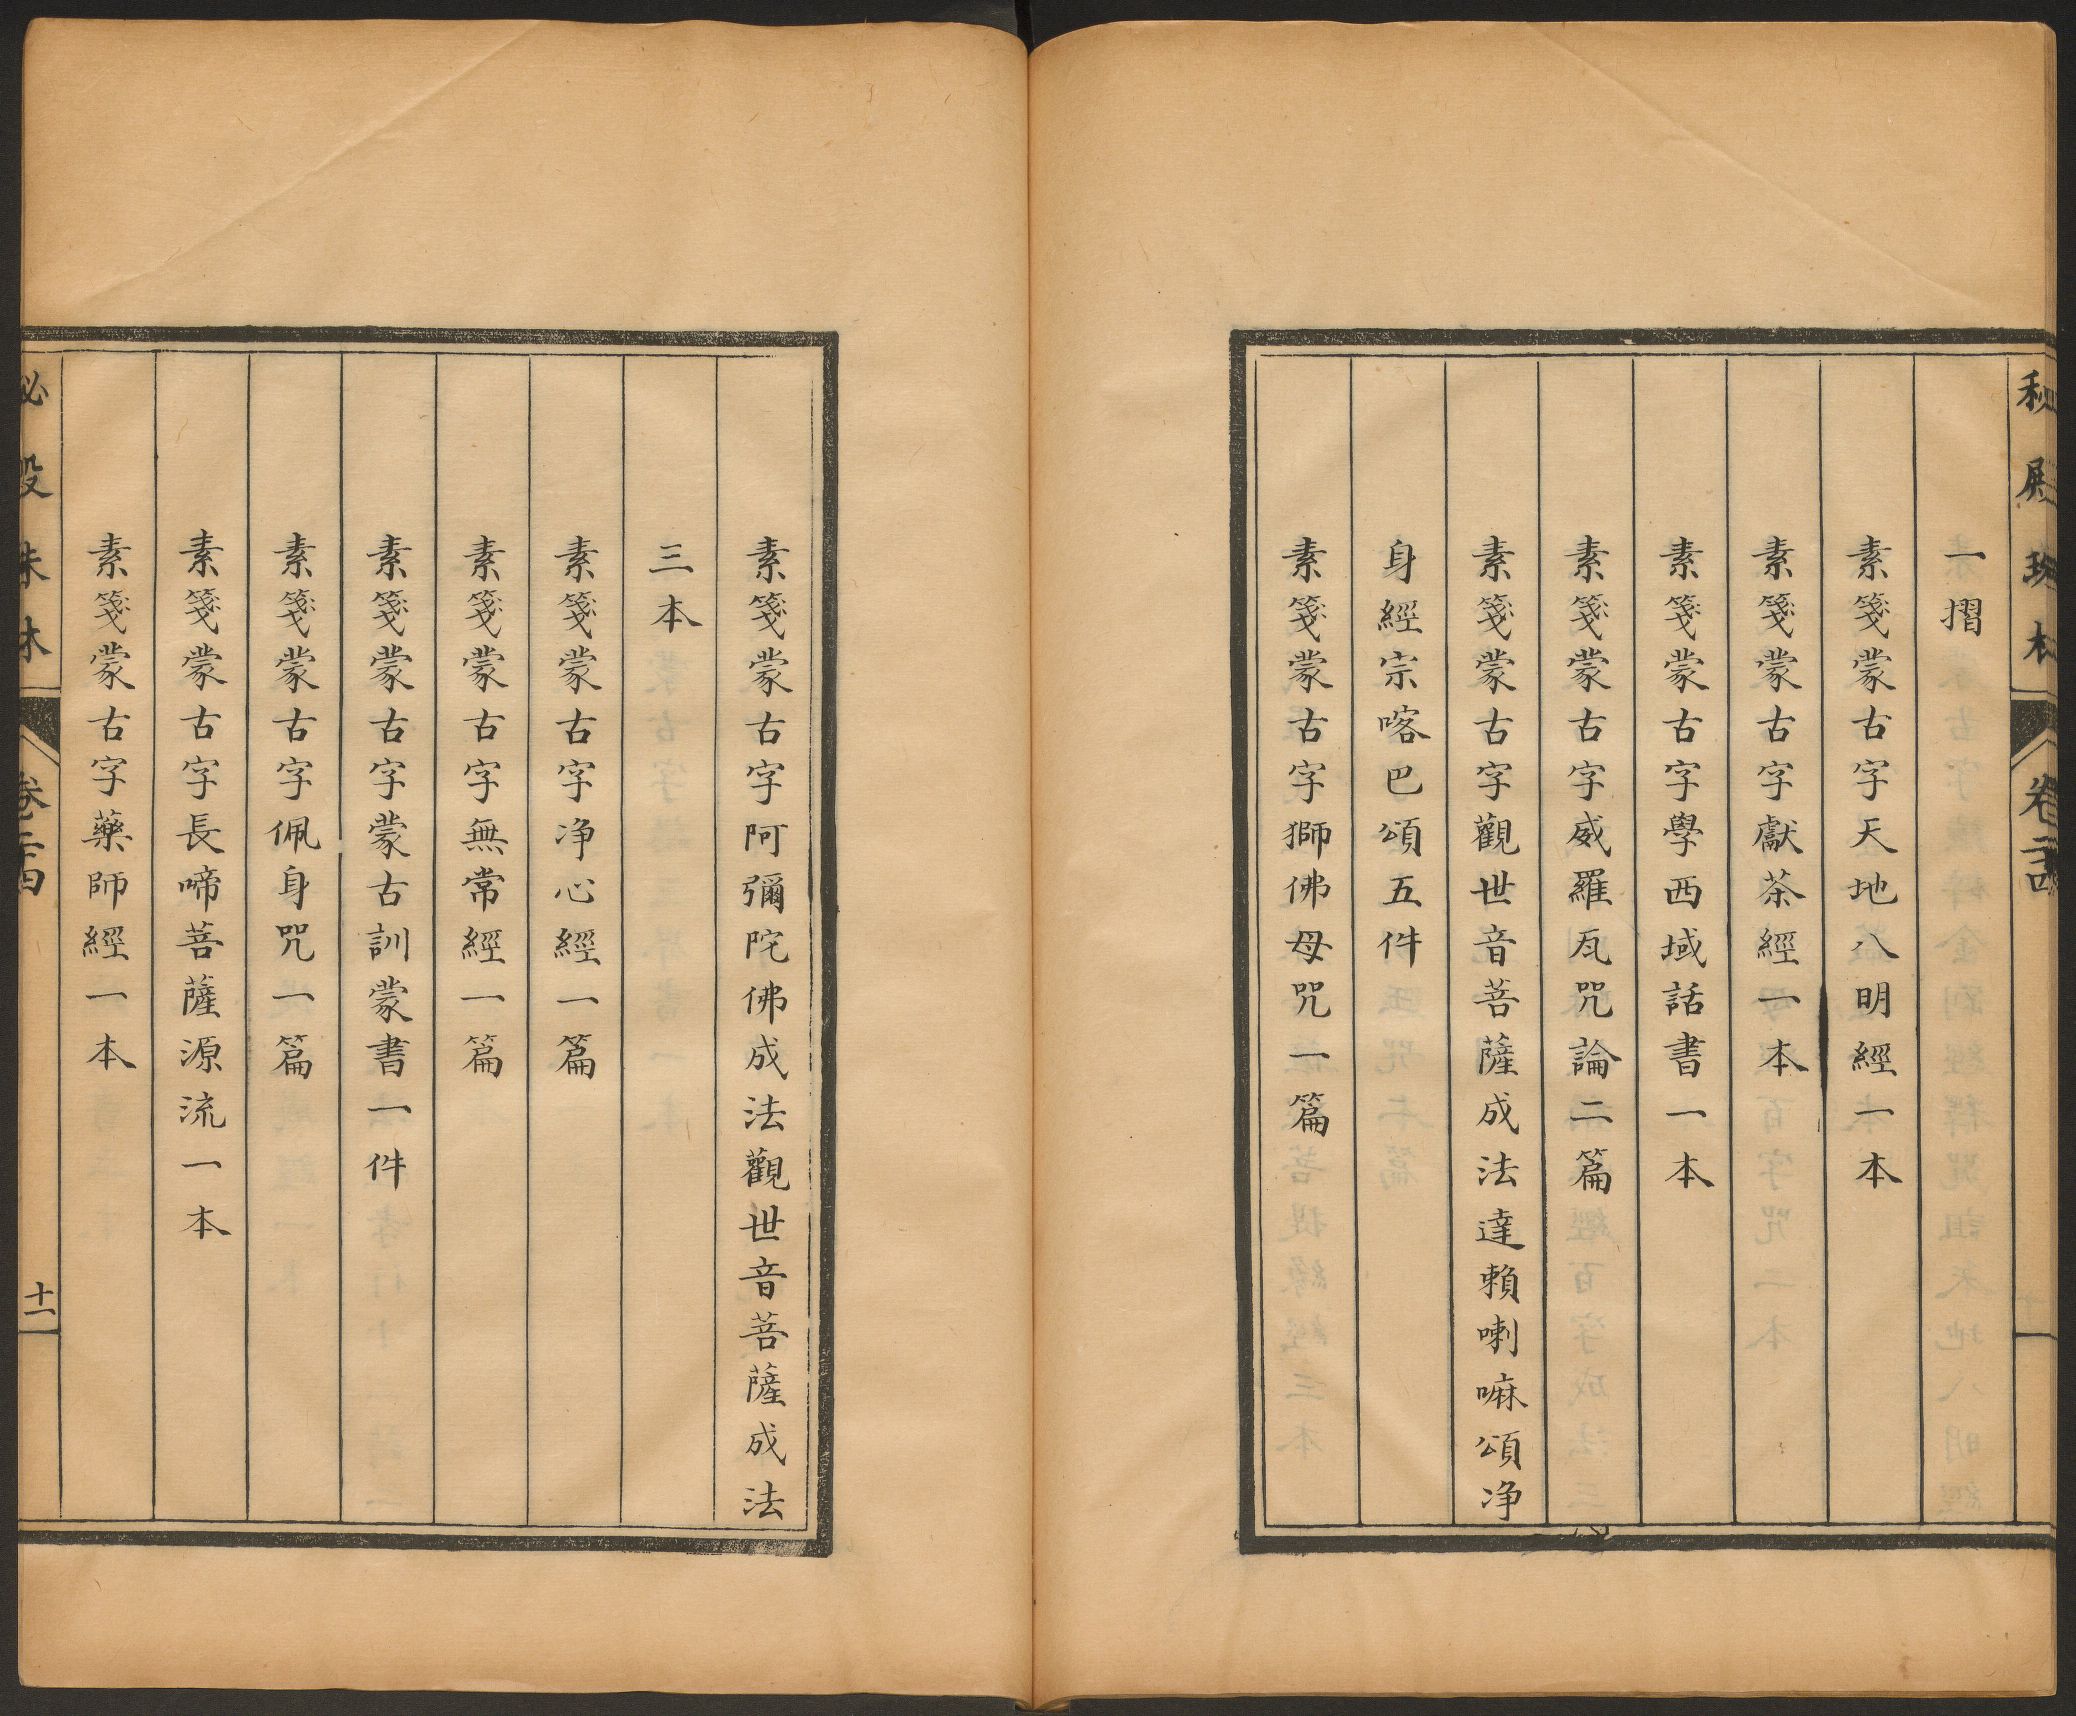 秘殿珠林
卷二十四
一摺
素箋蒙古字天地八明經一本
素箋蒙古字獻茶經一本
素箋蒙古字學西域話書一本
素箋蒙古字威羅瓦咒論二篇
素箋蒙古字觀世音菩薩成法達賴喇嘛頌净
身經宗喀巴頌五件
素箋蒙古字獅佛母咒一篇
素箋蒙古字阿彌陀佛成法觀世音菩薩成法
三本
素箋蒙古字净心經一篇
素箋蒙古字無常經一篇
素箋蒙古字蒙古訓蒙書一件
素箋蒙古字佩身咒一篇
素箋蒙古字長啼菩薩源流一本
素箋蒙古字藥師經一本
秘殿珠林
卷二十四
十一